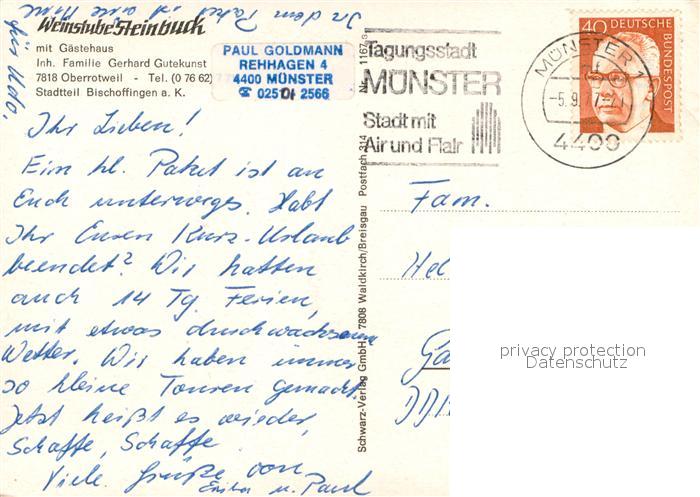 In dem Paket ist eine
für Udo,
Weinstube Steinbuck
mit Gästehaus
Inh. Familie Gerhard Gutekunst
7818 Oberrotweil - Tel. (0 76 62)
Stadtteil Bischoffingen a. K.
PAUL GOLDMANN
REHHAGEN 4
4400 MÜNSTER
☎ 0251 2566
Tagungsstadt
MÜNSTER
Stadt mit
Air und Flair
MÜNSTER 1
-5.9.77-21
4400
40 DEUTSCHE
BUNDESPOST
Ihr Lieben!
Ein kl. Paket ist an
Euch unterwegs. Habt
Ihr Euren Kurz-Urlaub
beendet? Wir hatten
auch 14 Tg. Ferien,
mit etwas durchwachsenem
Wetter. Wir haben immer
so kleine Touren gemacht.
Jetzt heißt es wieder,
Schaffe, Schaffe.
Viele Grüße von
Erika u. Paul
Schwarz-Verlag GmbH, 7808 Waldkirch/Breisgau Postfach 314 Nr. 1167
Fam.
Hel
Ga
DD
privacy protection
Datenschutz